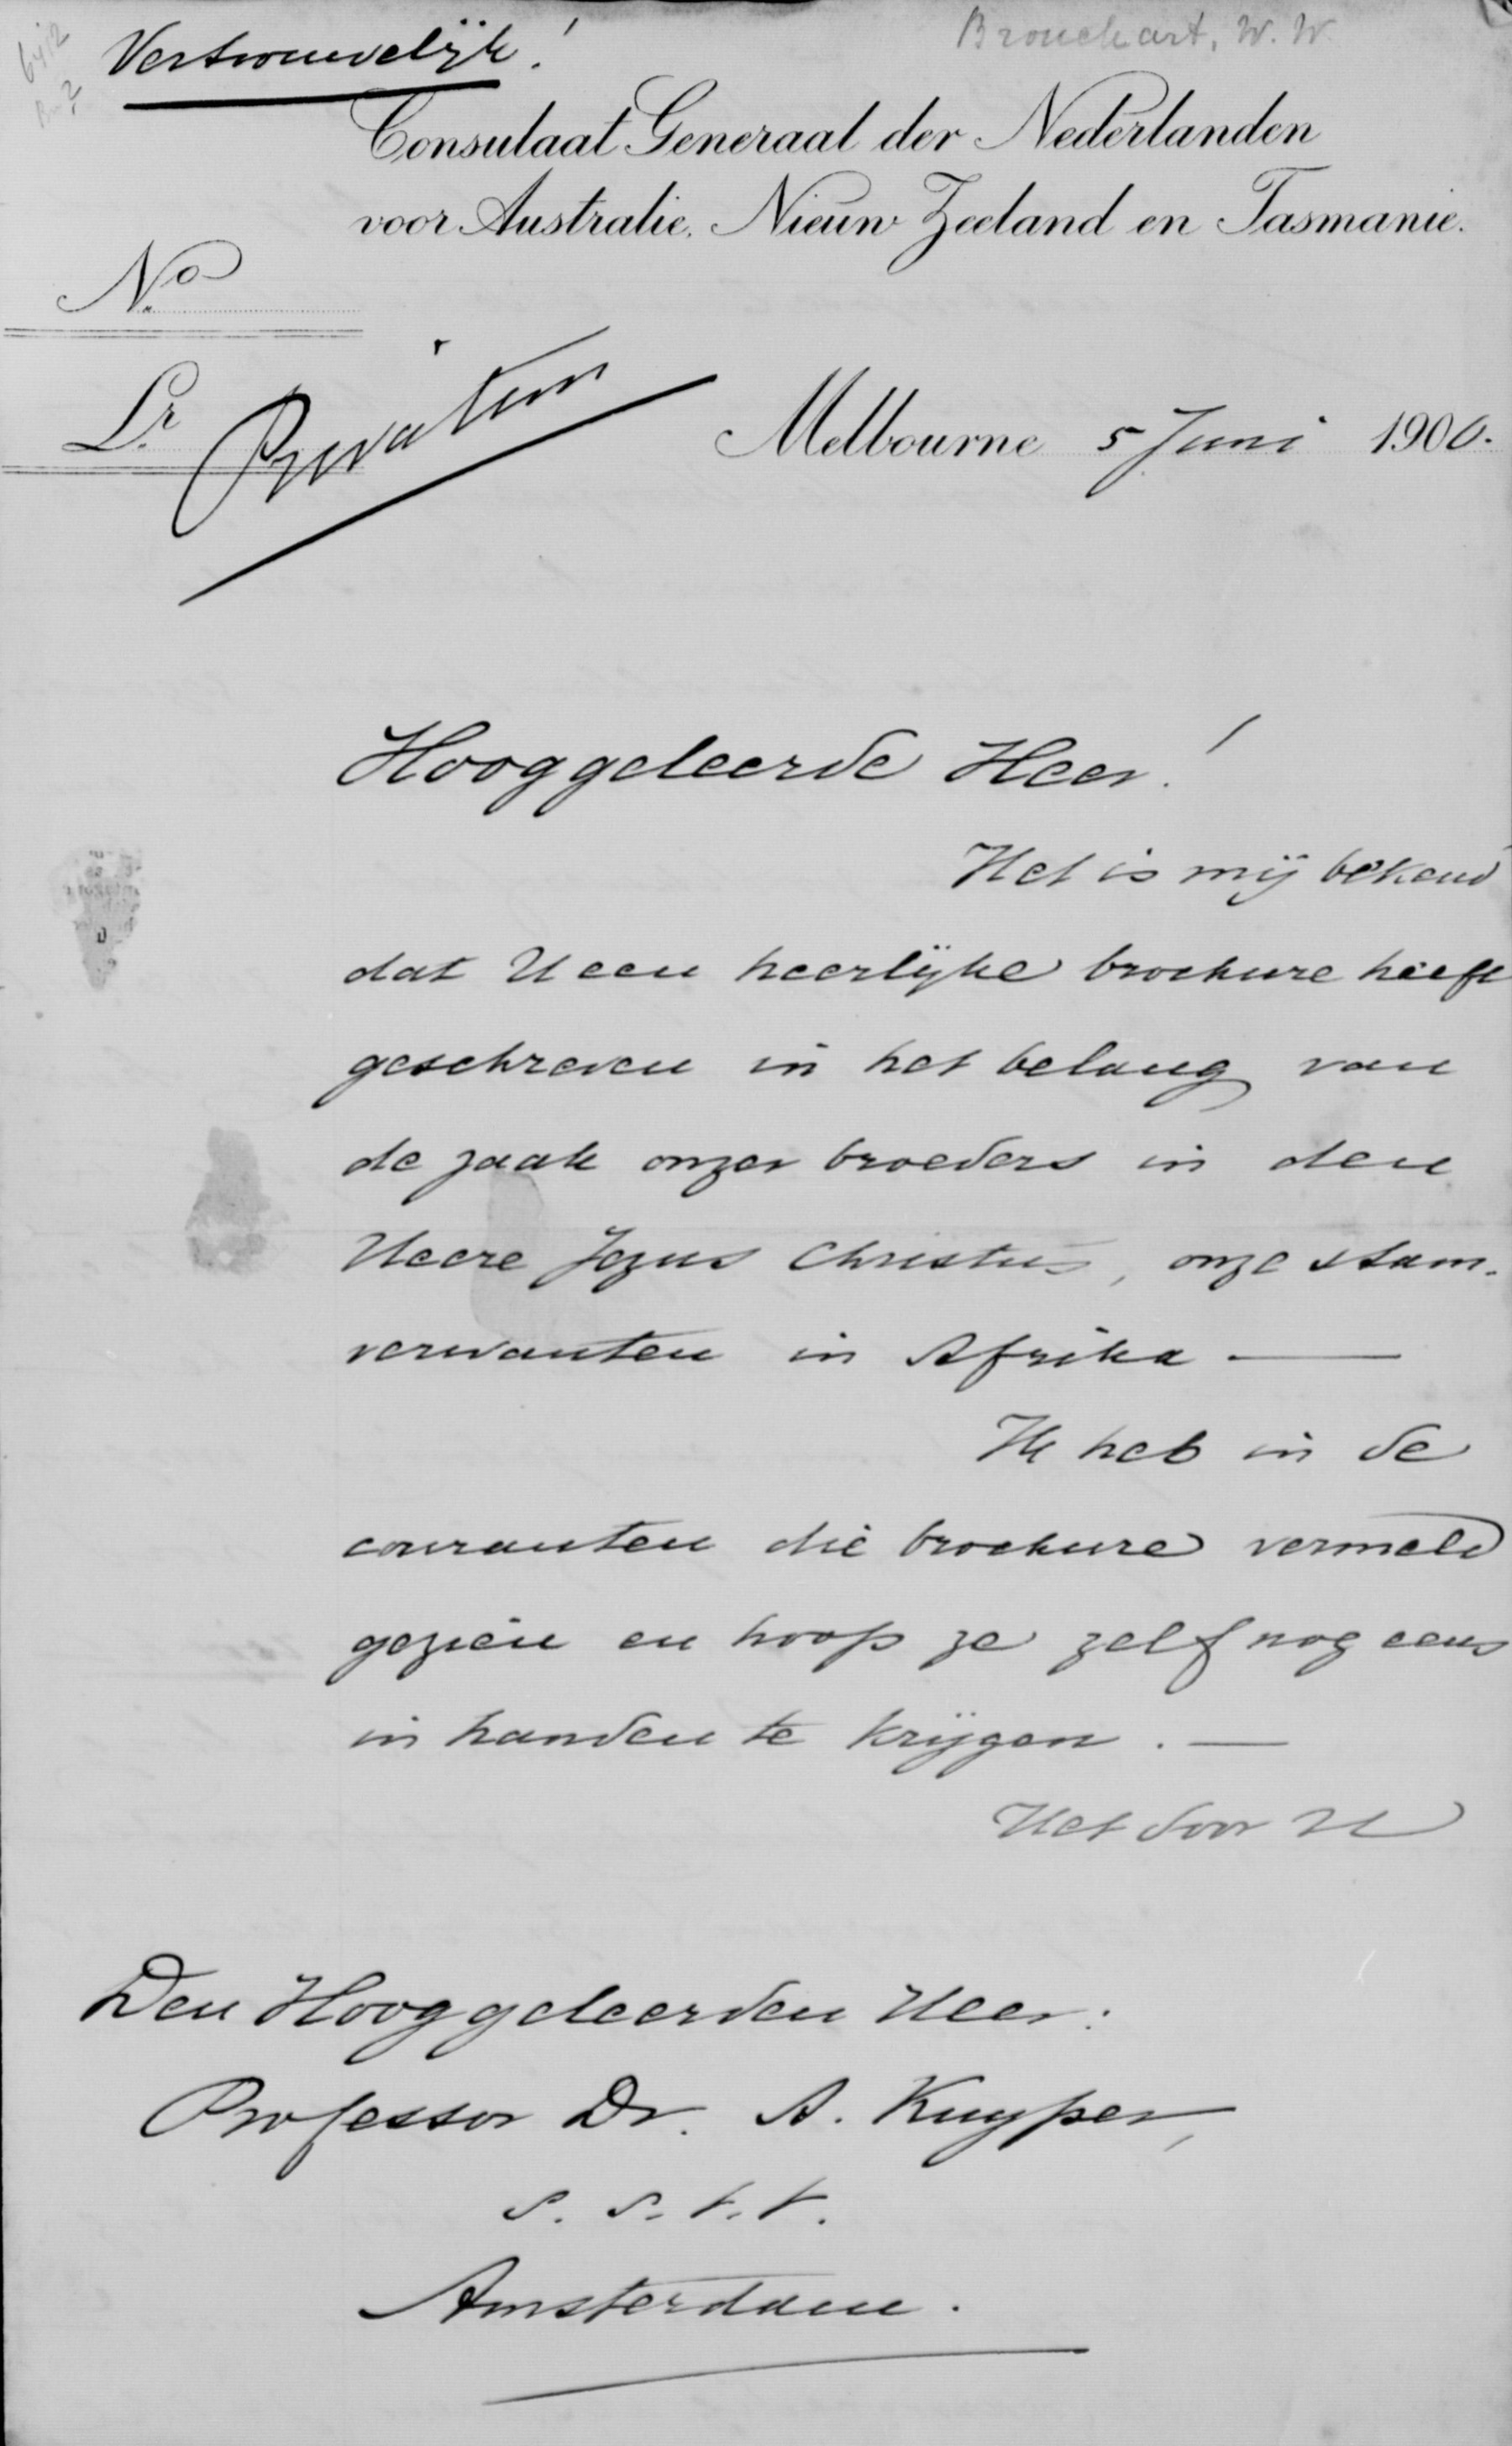 6412
Brouchart, W. W.
Vertrouwelijk!
Consulaat Generaal der Nederlanden
voor Australie, Nieuw Zeeland en Tasmanie.
No.
Lr. Privatim
Melbourne 5 Juni 1900.
Hooggeleerde Heer!
Het is mij bekend
dat U een heerlijke brochure heeft
geschreven in het belang van
de zaak onzer broeders in den
Heere Jezus Christus, onze stam-
verwanten in Afrika —
Ik heb in de
couranten die brochure vermeld
gezien en hoop ze zelf nog eens
in handen te krijgen. —
Het door U
Den Hooggeleerden Heer:
Professor Dr. A. Kuyper,
S. S. t. t.
Amsterdam.